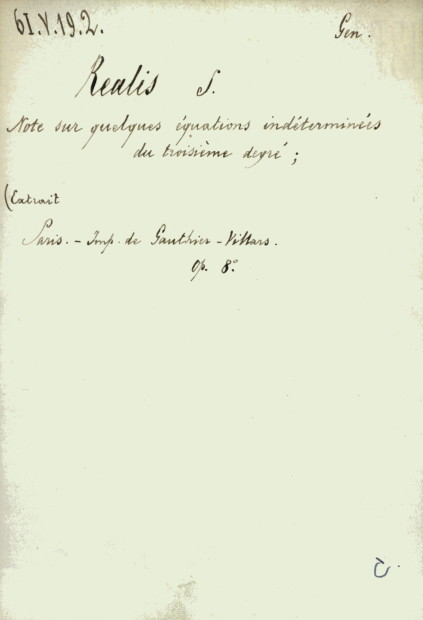 61.V.19.2.
Gen.
Realis S.
Note sur quelques équations indéterminées
du troisième degré ;
(Extrait
Paris. - Imp. de Gauthier-Villars.
Op. 8°.